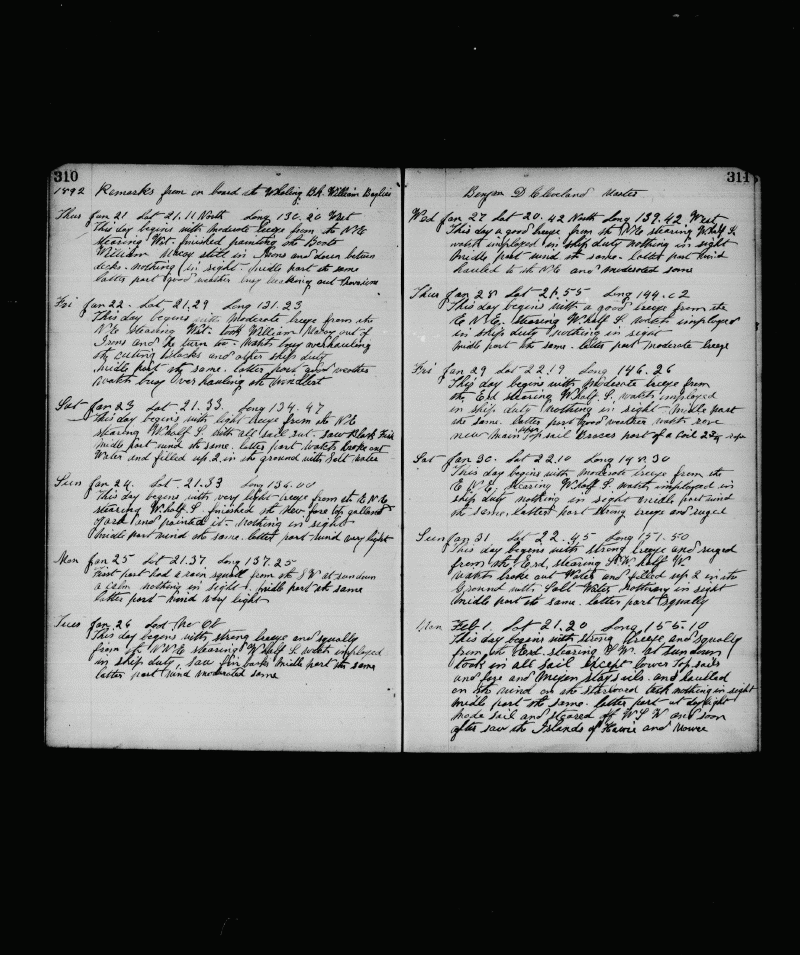 310
1892 Remarks from on board the Whaling Bk. William Baylies
Thus Jan 21 Lat 21.11 North Long 130.20 West
This day begins with moderate breeze from the N E
stearing Wst. finished painting the Boats
William Macy still in Irons and down betwen
decks. nothing in sight. midle part the same
latter part good weather
Fri Jan 22. Lat 21.29 Long 131.23
This day begins with moderate breeze from the
N E stearing Wst. took William Macy out of
Irons and he turn to. watch buy overhauling
the cuting blocks and other ships duty
midle part the same. latter part good weather
watch buy Over hauling the windlest
Sat Jan 23 Lat 21.33. Long 134.47
This day begins with light breeze from the N E
stearing W half S with all sail out. saw Black Fish
midle part wind the same. latter part watch broke out
Water and filled up 2 in the ground with Salt water
Sun Jan 24. Lat. 21.53 Long 136.00
This day begins with very light breeze from the E N E
stearing W half S. finished the New fore top gallant
yard and painted it. nothing in sight
midle part wind the same. latter part wind very light
Mon Jan 25 Lat 21.37 Long 137.25
First part had a rain squall from the S W at sundown
a calm nothing in sight. midle part the same
latter part wind very light
Tues Jan 26 Lat No Ob
This day begins with strong breeze and squally
from the N N E stearing W half S. watch imployed
in ship duty, saw fin backs midle part the same
latter part wind moderated some
311
Benjm D Cleveland Master
Wed Jan 27 Lat 20.42 North Long 139.42 West
This day a good breeze from the N E stearing W half S.
watch imployed in ship duty nothing in sight
midle part wind the same. latter part wind
hauled to the N E and moderated some
Thus Jan 28 Lat 21.55 Long 144.02
This day begins with a good breeze from the
E N E. stearing W half S. watch imployed
in ship duty nothing in sight
midle part the same. latter part moderate breeze
Fri Jan 29 Lat 22.19 Long 146.26
This day begins with moderate breeze from
the Erd stearing W half. S. watch imployed
in ship duty nothing in sight. midle part
the same. latter part good weather. watch rove
new main topsail Braces part of a coil
Sat Jan 30. Lat 22.10 Long 148.30
This day begins with moderate breeze from the
E N E. stearing W half S. watch imployed in
ship duty nothing in sight midle part wind
the same. lattest part strong breeze and ruged
Sun Jan 31 Lat 22.45 Long 151.50
This day begins with strong breeze and ruged
from the Erd. stearing S.W. half W.
watch broke out Water and filled up 2 in the
Ground with Salt Water nothing in sight
midle part the same. latter part squally
Mon Feb 1. Lat 21.20 Long 155.10
This day begins with strong breeze, and squally
from the Erd. stearing S W. at sundown
took in all sail except lower Topsails
and fore and Mizen staysails. and hauled
on the wind on the starboard tack nothing in sight
midle part the same. latter part at daylight
made sail and steared off W S W and soon
after saw the Islands of Hawie and Mowee